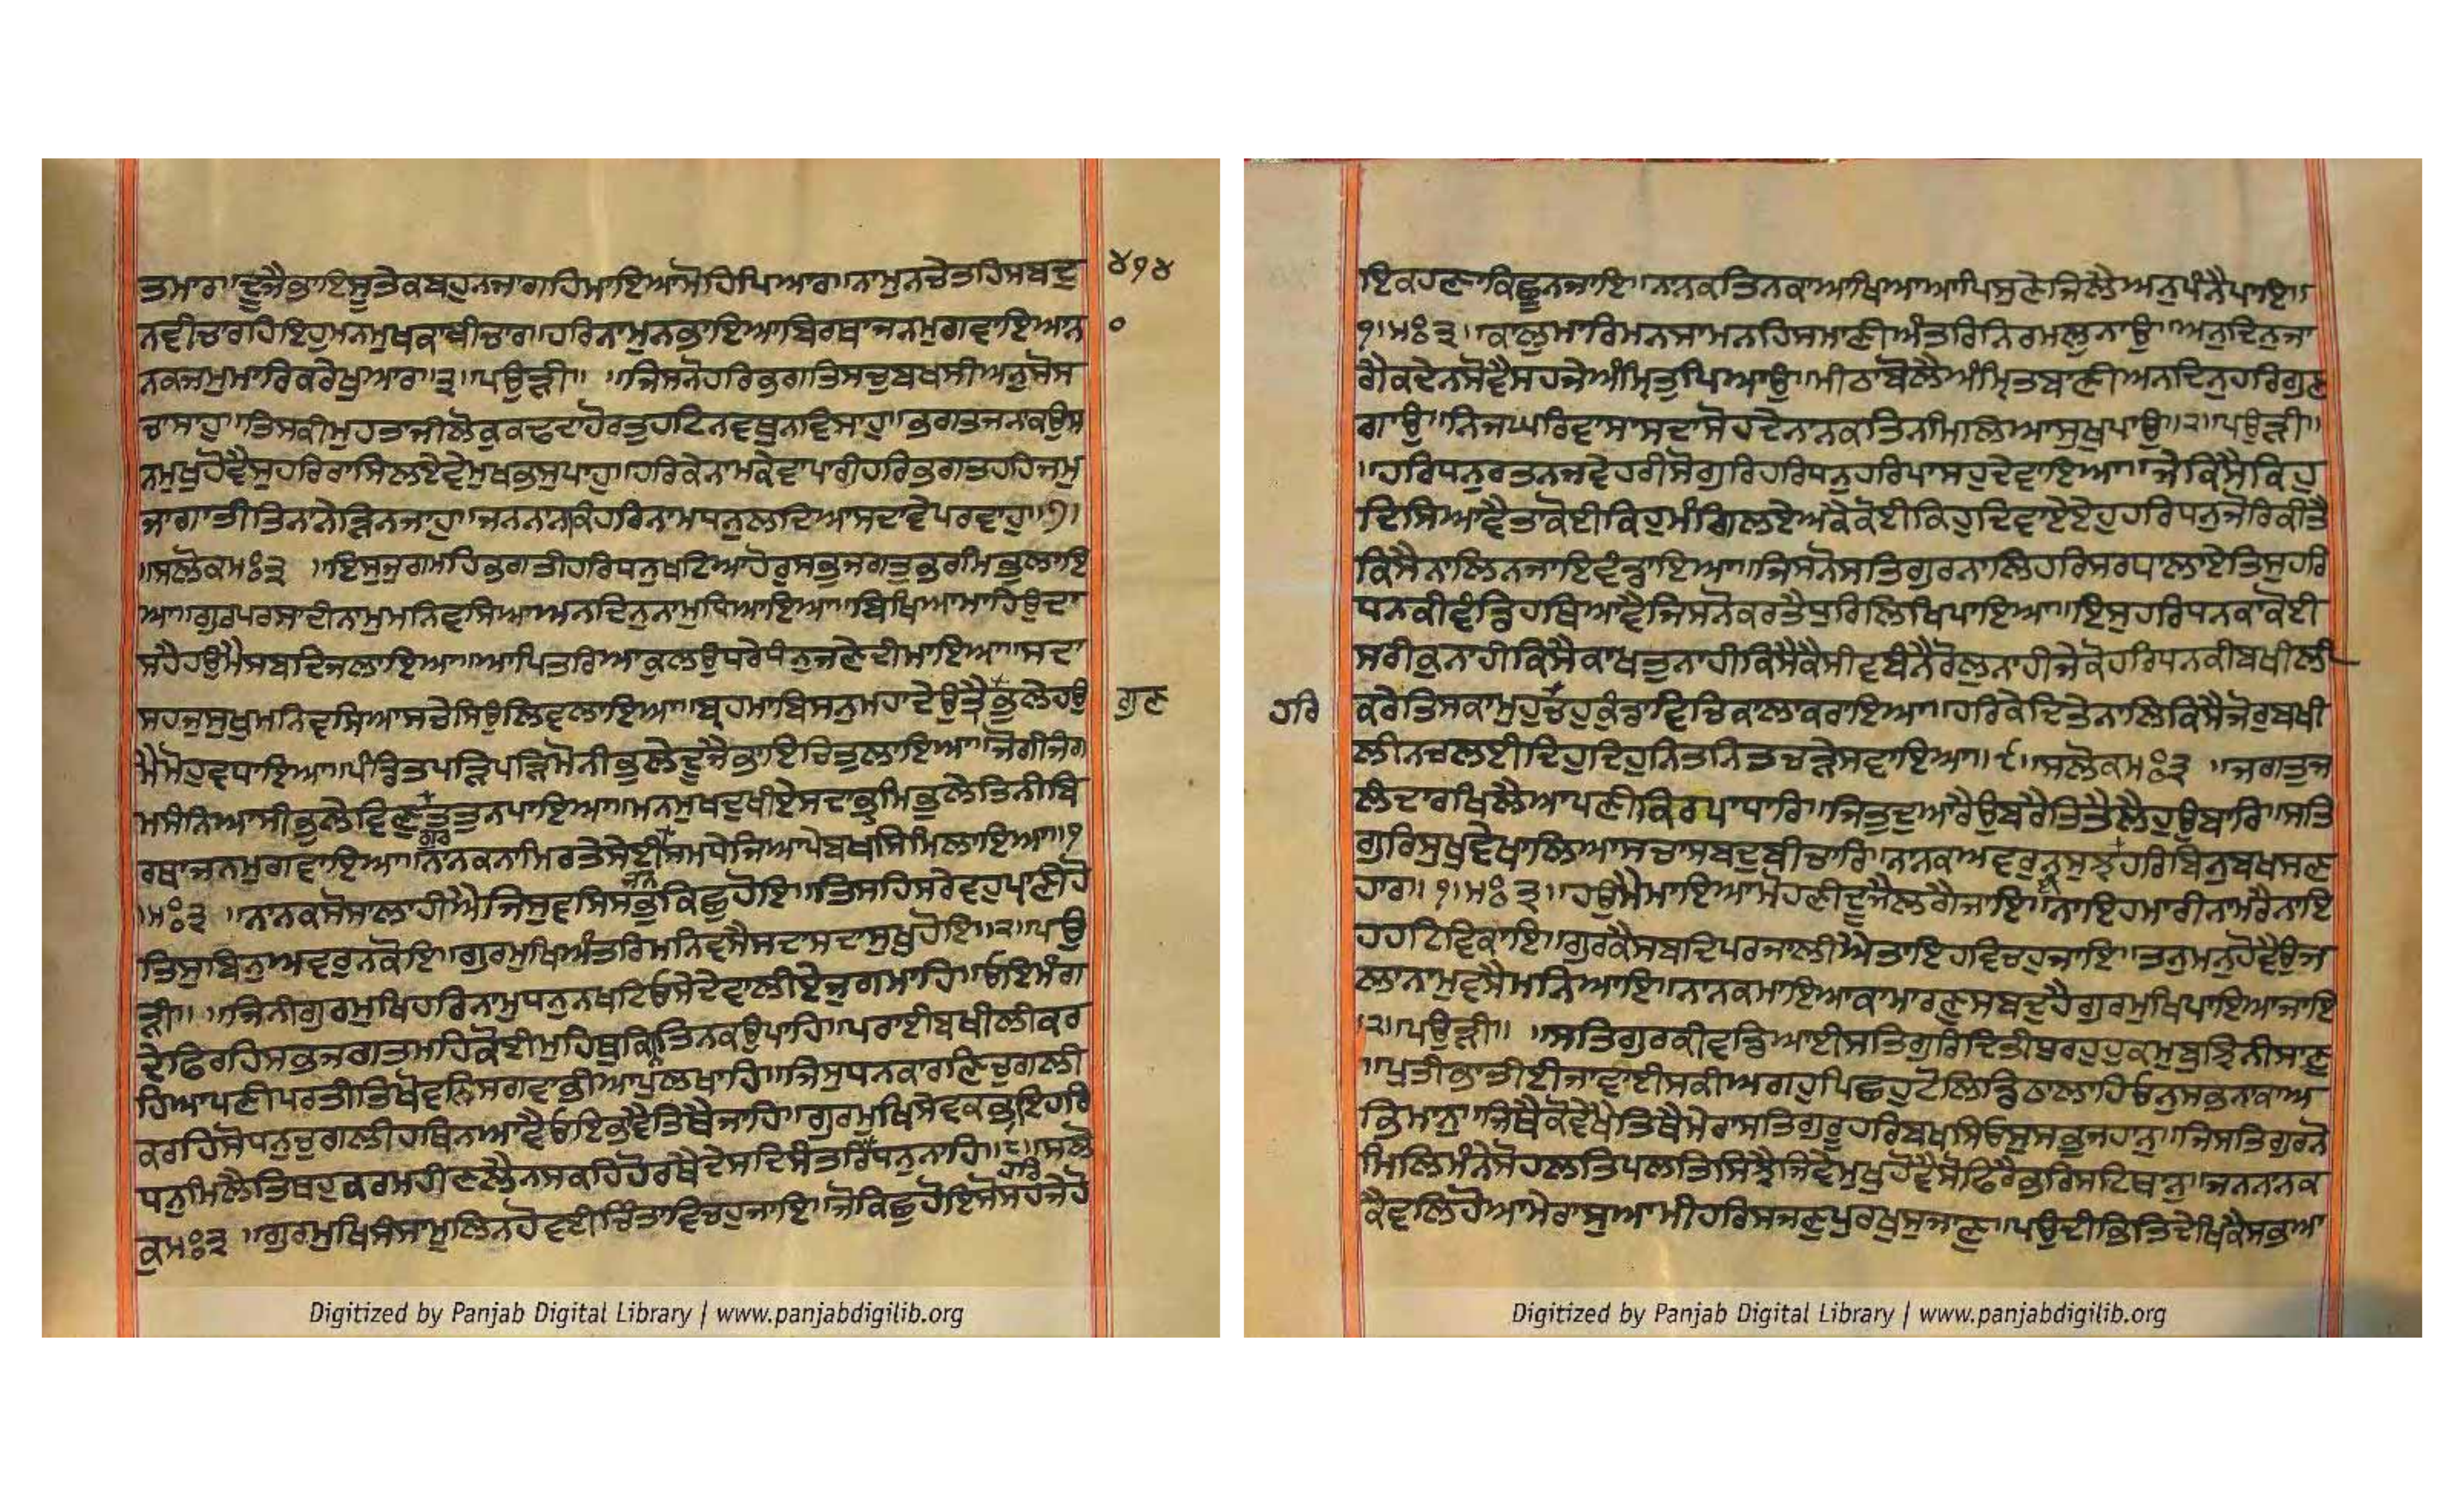 ਤਮਾਰਾ॥ਦੂਜੈਭਾਇਸੂਤੇਕਬਹੁਨਜਾਗਹਿਮਾਇਆਮੋਹਿਪਿਆਰਾ॥ਨਾਮੁਨਚੇਤਹਿਸਬਦੁ
੪੧੪
ਨਵੀਚਾਰਹਿਇਹੁਮਨਮੁਖਕਾਬੀਚਾਰਾ॥ਹਰਿਨਾਮੁਨਭਾਇਆਬਿਰਥਾਜਨਮੁਗਵਾਇਆਨ
੦
ਨਕਜਮੁਮਾਰਿਕਰੇਖੁਆਰਾ॥੩॥ਪਉੜੀ॥ ॥ਜਿਸਨੋਹਰਿਭਗਤਿਸਚੁਬਖਸੀਅਨੁਸੋਸ
ਚਾਸਾਹੁ॥ਤਿਸਕੀਮੁਹਤਾਜੀਲੋਕੁਕਢਦਾਹੋਰਤੁਹਟਿਨਵਥੁਨਵਿਸਾਹੁ॥ਭਗਤਜਨਕਉਸ
ਨਮੁਖੁਹੋਵੈਸੁਹਰਿਰਾਸਿਲਏਵੇਮੁਖਭਸੁਪਾਹੁ॥ਹਰਿਕੇਨਾਮਕੇਵਾਪਾਰੀਹਰਿਭਗਤਹਹਿਜਮੁ
ਜਾਗਾਤੀਤਿਨਾਨੇੜਿਨਜਾਹੁ॥ਜਨਨਾਨਕਿਹਰਿਨਾਮਧਨੁਲਦਿਆਸਦਾਵੇਪਰਵਾਹੁ॥੭॥
॥ਸਲੋਕਮਃ੩ ॥ਇਸੁਜੁਗਮਹਿਭਗਤੀਹਰਿਧਨੁਖਟਿਆਹੋਰੁਸਭੁਜਗਤੁਭਰਮਿਭੁਲਾਇ
ਆ॥ਗੁਰਪਰਸਾਦੀਨਾਮੁਮਨਿਵਸਿਆਅਨਦਿਨੁਨਾਮੁਧਿਆਇਆ॥ਬਿਖਿਆਮਾਹਿਉਦਾ
ਸਹੈਹਉਮੈਸਬਦਿਜਲਾਇਆ॥ਆਪਿਤਰਿਆਕੁਲਉਧਰੇਧੰਨੁਜਣੇਦੀਮਾਇਆ॥ਸਦਾ
ਸਹਜੁਸੁਖੁਮਨਿਵਸਿਆਸਚੇਸਿਉਲਿਵਲਾਇਆ॥ਬ੍ਰਹਮਾਬਿਸਨੁਮਹਾਦੇਉਤ੍ਰੈਭੁਲੇਹਉ
ਗੁਣ
ਮੈਮੋਹੁਵਧਾਇਆ॥ਪੰਡਿਤਪੜਿਪੜਿਮੋਨੀਭੁਲੇਦੂਜੈਭਾਇਚਿਤੁਲਾਇਆ॥ਜੋਗੀਜੰਗ
ਮਸੰਨਿਆਸੀਭੁਲੇਵਿਣੁਤਤੁਨਪਾਇਆ॥ਮਨਮੁਖਦੁਖੀਏਸਦਾਭ੍ਰਮਿਭੁਲੇਤਿਨੀਬਿ
ਗੁਰ
ਰਥਾਜਨਮੁਗਵਾਇਆ॥ਨਾਨਕਨਾਮਿਰਤੇਸੇਈਸਮਧੇਜਿਆਪੇਬਖਸਿਮਿਲਾਇਆ॥੧
ਜਨ
॥ਮਃ੩ ॥ਨਾਨਕਸੋਸਾਲਾਹੀਐਜਿਸੁਵਸਿਸਭੁਕਿਛੁਹੋਇ॥ਤਿਸਹਿਸਰੇਵਹੁਪ੍ਰਾਣੀਹੋ
ਤਿਸੁਬਿਨੁਅਵਰੁਨਕੋਇ॥ਗੁਰਮੁਖਿਅੰਤਰਿਮਨਿਵਸੈਸਦਾਸਦਾਸੁਖੁਹੋਇ॥੨॥ਪਉ
ੜੀ॥ ॥ਜਿਨੀਗੁਰਮੁਖਿਹਰਿਨਾਮੁਧਨੁਨਖਟਿਓਸੇਦੇਵਾਲੀਏਜੁਗਮਾਹਿ॥ਓਇਮੰਗ
ਦੇਫਿਰਹਿਸਭਜਗਤਮਹਿਕੋਈਮੁਹਿਥੁਕਨਤਿਨਕਉਪਾਹਿ॥ਪਰਾਈਬਖੀਲੀਕਰ
ਹਿਆਪਣੀਪਰਤੀਤਿਖੋਵਨਿਸਗਵਾਭੀਆਪੁਲਖਾਹਿ॥ਜਿਸੁਧਨਕਾਰਣਿਚੁਗਲੀ
ਕਰਹਿਸੋਧਨੁਚੁਗਲੀਹਥਿਨਆਵੈਓਇਭਾਵੈਤਿਥੈਜਾਹਿ॥ਗੁਰਮੁਖਿਸੇਵਕਭਾਇਹਰਿ
ਧਨੁਮਿਲੈਤਿਥਹੁਕਰਮਹੀਣਲੈਨਸਕਹਿਹੋਰਥੈਦੇਸਦਿਸੰਤਰਿਧਨੁਨਾਹਿ॥੮॥ਸਲੋ
ਹਰਿ
ਕੁਮਃ੩ ॥ਗੁਰਮੁਖਿਸੰਸਾਮੂਲਿਨਹੋਵਈਚਿੰਤਾਵਿਚਹੁਜਾਇ॥ਜੋਕਿਛੁਹੋਇਸੋਸਹਜੇਹੋ
ਇਕਹਣਾਕਿਛੂਨਜਾਇ॥ਨਨਕਤਿਨਕਾਆਖਿਆਆਪਿਸੁਣੇਜਿਲੈਅਨੁਪੰਨੈਪਾਇ॥
੧॥ਮਃ੩॥ਕਾਲੁਮਾਰਿਮਨਸਾਮਨਹਿਸਮਾਣੀਅੰਤਰਿਨਿਰਮਲੁਨਾਉ॥ਅਨੁਦਿਨੁਜਾ
ਗੈਕਦੇਨਸੋਵੈਸਹਜੇਅੰਮ੍ਰਿਤੁਪਿਆਉ॥ਮੀਠਾਬੋਲੈਅੰਮ੍ਰਿਤਬਾਣੀਅਨਦਿਨੁਹਰਿਗੁਣ
ਗਾਉ॥ਨਿਜਘਰਿਵਾਸਾਸਦਾਸੋਹਦੇਨਾਨਕਤਿਨੀਮਿਲਿਆਸੁਖੁਪਾਉ॥੨॥ਪਉੜੀ॥
॥ਹਰਿਧਨੁਰਤਨਜਵੇਹਰੀਸੋਗੁਰਿਹਰਿਧਨੁਹਰਿਪਾਸਹੁਦੇਵਾਇਆ॥ਜੇਕਿਸੈਕਿਹੁ
ਦਿਸਿਆਵੈਤਾਕੋਈਕਿਹੁਮੰਗਿਲਏਅਕੇਕੋਈਕਿਹੁਦਿਵਾਏਏਹੁਹਰਿਧਨੁਜੋਰਿਕੀਤੈ
ਕਿਸੈਨਾਲਿਨਜਾਇਵੰਡਾਇਆ॥ਜਿਸਨੋਸਤਿਗੁਰਨਾਲਿਹਰਿਸਰਧਾਲਾਏਤਿਸੁਹਰਿ
ਧਨਕੀਵੰਡਿਹਥਿਆਵੈਜਿਸਨੋਕਰਤੈਧੁਰਿਲਿਖਿਪਾਇਆ॥ਇਸੁਹਰਿਧਨਕਾਕੋਈ
ਸਰੀਕੁਨਾਹੀਕਿਸੈਕਾਖਤੁਨਾਹੀਕਿਸੈਕੈਸੀਵਬੰਨੈਰੋਲੁਨਾਹੀਜੇਕੋਹਰਿਧਨਕੀਬਖੀਲੀ
ਹਰਿ
ਕਰੇਤਿਸਕਾਮੁਹੁਚਹੁਕੁੰਡਾਵਿਚਿਕਾਲਾਕਰਾਇਆ॥ਹਰਿਕੇਦਿਤੇਨਾਲਿਕਿਸੈਜੋਰੁਬਖੀ
ਲੀਨਚਲਈਦਿਹੁਦਿਹੁਨਿਤਨਿਤਚੜੇਸਵਾਇਆ॥੯॥ਸਲੋਕਮਃ੩ ॥ਜਗਤੁਜ
ਲੰਦਾਰਖਿਲੈਆਪਣੀਕਿਰਪਾਧਾਰਿ॥ਜਿਤੁਦੁਆਰੈਉਬਰੈਤਿਤੈਲੈਹੁਉਬਾਰਿ॥ਸਤਿ
ਗੁਰਿਸੁਖੁਵੇਖਾਲਿਆਸਚਾਸਬਦੁਬੀਚਾਰਿ॥ਨਨਕਾਅਵਰੁਨੁਸੁਝੈਹਰਿਬਿਨੁਬਖਸਣ
ਹਾਰ॥੧॥ਮਃ੩॥ਹਉਮੈਮਾਇਆਮੋਹਣੀਦੂਜੈਲਗੈਜਾਇ॥ਨਾਇਹਮਾਰੀਨਾਮਰੈਨਾਇ
ਹਹਟਿਵਿਕਾਇ॥ਗੁਰਕੈਸਬਦਿਪਰਜਾਲੀਐਤਾਇਹਵਿਚਹੁਜਾਇ॥ਤਨੁਮਨੁਹੋਵੈਉਜ
ਲਾਨਾਮੁਵਸੈਮਨਿਆਇ॥ਨਾਨਕਮਾਇਆਕਾਮਾਰਣੁਸਬਦੁਹੈਗੁਰਮੁਖਿਪਾਇਆਜਾਇ
।੨॥ਪਉੜੀ॥ ॥ਸਤਿਗੁਰਕੀਵਡਿਆਈਸਤਿਗੁਰਿਦਿਤੀਧੁਰਹੁਹੁਕਮੁਬੁਝਿਨੀਸਾਣੁ
॥ਪੁਤੀਭਾਤੀਈਜਾਵਾਈਸਕੀਅਗਹੁਪਿਛਹੁਟੋਲਿਡਿਠਾਲਾਹਿਓਨੁਸਭਨਾਕਾਅ
ਭਿਮਾਨੁ॥ਜਿਥੈਕੋਵੇਖੈਤਿਥੈਮੇਰਾਸਤਿਗੁਰੂਹਰਿਬਖਸਿਓਸੁਸਭੁਜਹਾਨੁ॥ਜਿਸਤਿਗੁਰਨੋ
ਮਿਲਿਮੰਨੇਸੋਹਲਤਿਪਲਤਿਸਿਝੈਜਿਵੇਮੁਖੁਹੋਵੈਸੋਫਿਰੈਭਰਿਸਟਿਥਾਨੁ॥ਜਨਨਨਕ
ਕੈਵਲਿਹੋਆਮੇਰਾਸੁਆਮੀਹਰਿਸਜਣੁਪੁਰਖੁਸੁਜਾਣੁ॥ਪਉਦੀਭਿਤਿਦੇਖਿਕੈਸਭਆ
Digitized by Panjab Digital Library | www.panjabdigilib.org
Digitized by Panjab Digital Library | www.panjabdigilib.org